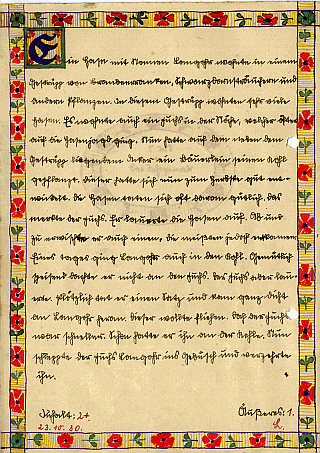 Ein Hase mit Namen Langohr wohnte in einem
Gestrüpp von Brombeerranken, Schwarzdornsträuchern und
anderen Pflanzen. In diesem Gestrüpp wohnten sehr viele
Hasen. Es wohnte auch ein Fuchs in der Nähe, welcher öfter
auf die Hasenjagd ging. Nun hatte auf dem neben dem
Gestrüpp liegenden Acker ein Bäuerlein seinen Kohl
gepflanzt. Dieser hatte sich nun zum Herbste gut ent-
wickelt. Die Hasen taten sich oft daran gütlich. Das
merkte der Fuchs. Er lauerte den Hasen auf. Ab und
zu erwischte er auch einen, die meisten jedoch entkamen.
Eines Tages ging Langohr auch in den Kohl. Gemütlich
speisend dachte er nicht an den Fuchs. Der Fuchs aber lau-
erte. Plötzlich tat er einen Satz und kam ganz dicht
an Langohr heran. Dieser wollte fliehen. Doch der Fuchs
war schneller. Schon hatte er ihn an der Kehle. Nun
schleppte der Fuchs Langohr ins Gebüsch und verzehrte
ihn.
Inhalt: 2+ Äußeres: 1.
23.10.30. L.